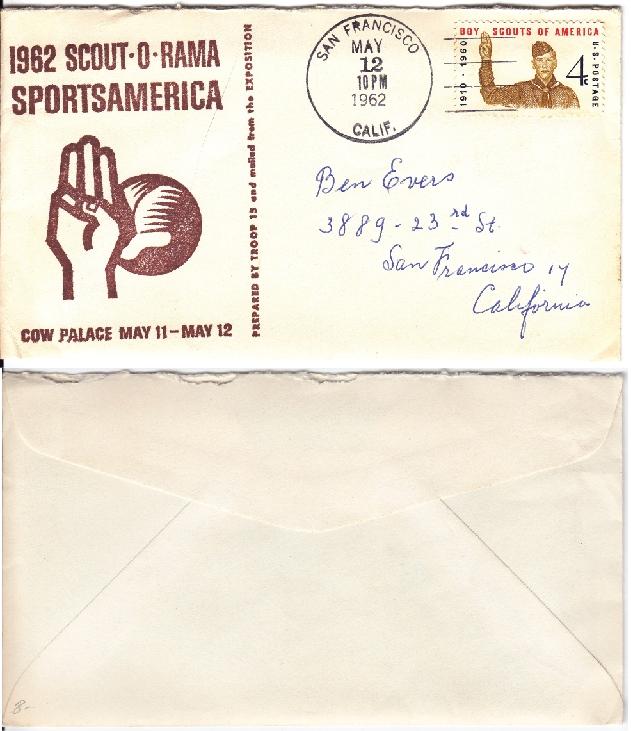 1962 SCOUT-O-RAMA
SPORTSAMERICA
COW PALACE MAY 11-MAY 12
PREPARED BY TROOP 15 and mailed from the EXPOSITION
SAN FRANCISCO
MAY
12
10 PM
1962
CALIF.
BOY SCOUTS OF AMERICA
1910-1960
4c
U.S. POSTAGE
Ben Evers
3889-23rd St.
San Francisco 14
California
8-